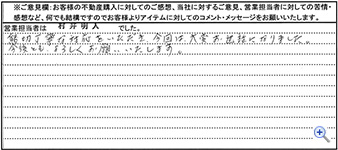 ※ご意見欄:お客様の不動産購入に対してのご感想、当社に対するご意見、営業担当者に対しての苦情・
感想など、何でも結構ですのでお客様よりアイテムに対してのコメント・メッセージをお願いいたします。
営業担当者は 村井明人 でした。
親切丁寧な対応をいただき、今回は大変お世話になりました。
今後ともよろしくお願いいたします。